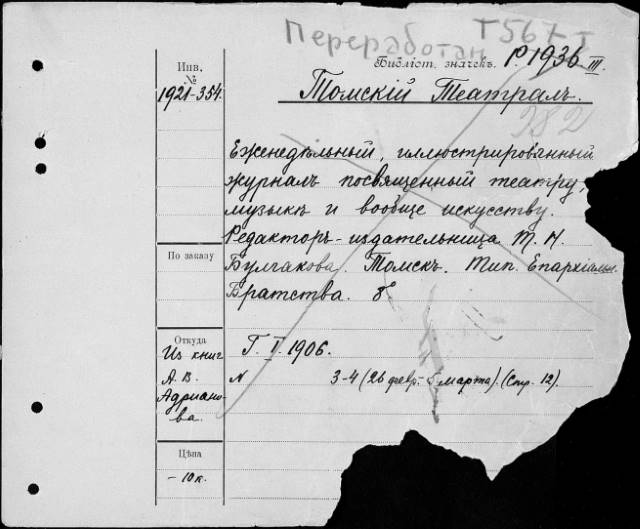 Переработан Т567-Т
Библіот. значекъ. Р.1936 III
Инв.
№
1921-354.
Томскій Театралъ.
982
Еженедѣльный, иллюстрированный
журналъ посвященный театру,
музыкѣ и вообще искусству.
Редакторъ-издательница М. Н.
По заказу
Булчакова. Томскъ. Тип. Епархіальн.
Братства. 8°
Откуда
Из книг
А. В.
Адриано-
ва.
Г. I. 1906.
N 3-4 (26 февр. - 5 марта). (Стр. 12).
Цѣна
- 10 к.